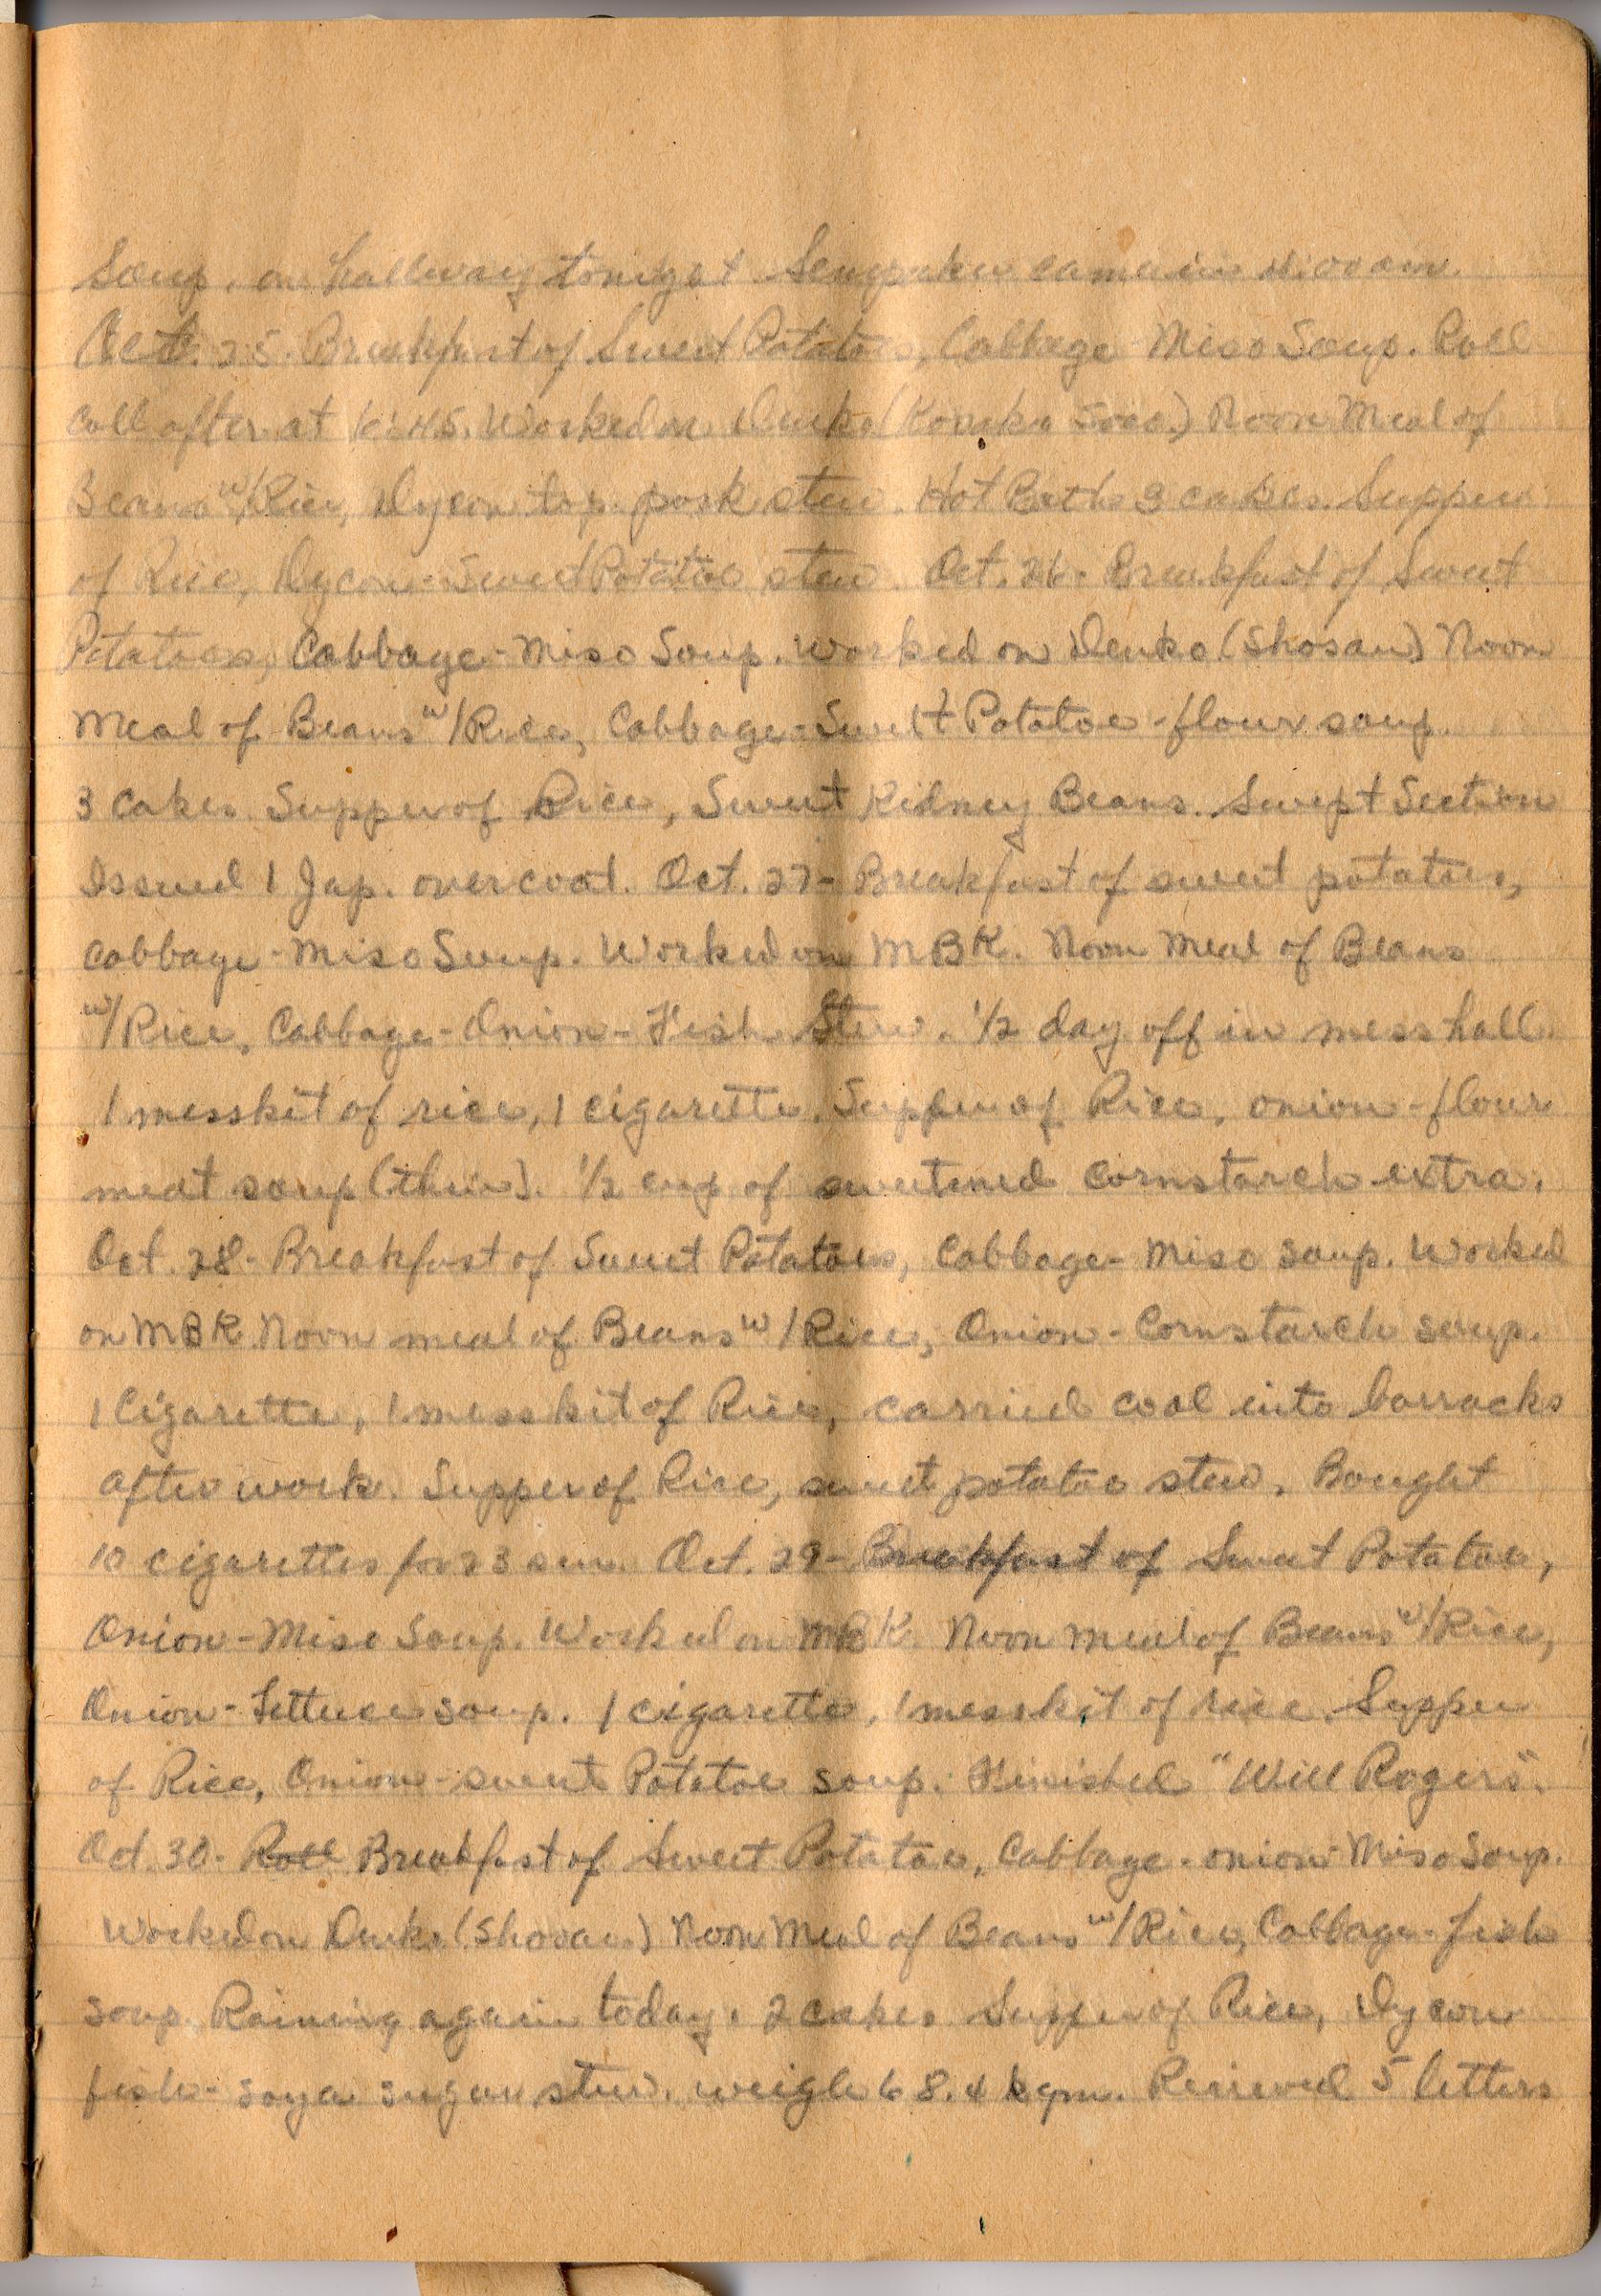 Soup. on hallway tonight Sengoku came in
Oct. 25. Breakfast of Sweet Potatoes, Cabbage Miso Soup. Roll
call after at Worked on Denko Noon Meal of
Beans w/Rice, Dycon top pork stew. Hot Bath 3 cakes. Supper
of Rice, Dycon-Sweet Potatoe stew. Oct. 26- Breakfast of Sweet
Potatoes, Cabbage-Miso Soup. Worked on Denko (Shosan) Noon
Meal of Beans w/Rice, Cabbage-Sweet Potatoe-flour soup.
3 Cakes. Supper of Rice, Sweet Kidney Beans. Swept Section
Issued 1 Jap. overcoat. Oct. 27- Breakfast of sweet potatoes,
cabbage-Miso Soup. Worked on MBK. Noon Meal of Beans
w/Rice, Cabbage-Onion-Fish Stew. 1/2 day off in mess hall.
1 messkit of rice, 1 cigarette. Supper of Rice, onion-flour
meat soup (thin). 1/2 cup of sweetened cornstarch extra.
Oct. 28- Breakfast of Sweet Potatoes, Cabbage-Miso soup. Worked
on MBK. Noon meal of Beans w/Rice, Onion-Cornstarch soup.
1 Cigarette, 1 messkit of Rice, carried coal into barracks
after work. Supper of Rice, sweet potatoe stew. Bought
10 cigarettes for 23 sen. Oct. 29- Breakfast of Sweet Potatoe,
Onion-Miso Soup. Worked on MBK Noon meal of Beans w/Rice,
Onion-Lettuce soup. 1 cigarette, 1 messkit of rice. Supper
of Rice, Onion-sweet Potatoe soup. Finished "Will Rogers".
Oct. 30- Roll Breakfast of Sweet Potatoe, Cabbage-onion-Miso Soup.
Worked on Denko (Shosan) Noon Meal of Beans w/Rice, Cabbage-fish
soup. Raining again today. 2 cakes. Supper of Rice, Dycon
fish-soya sugar stew. weigh 68.4 kgm. Recieved 5 letters